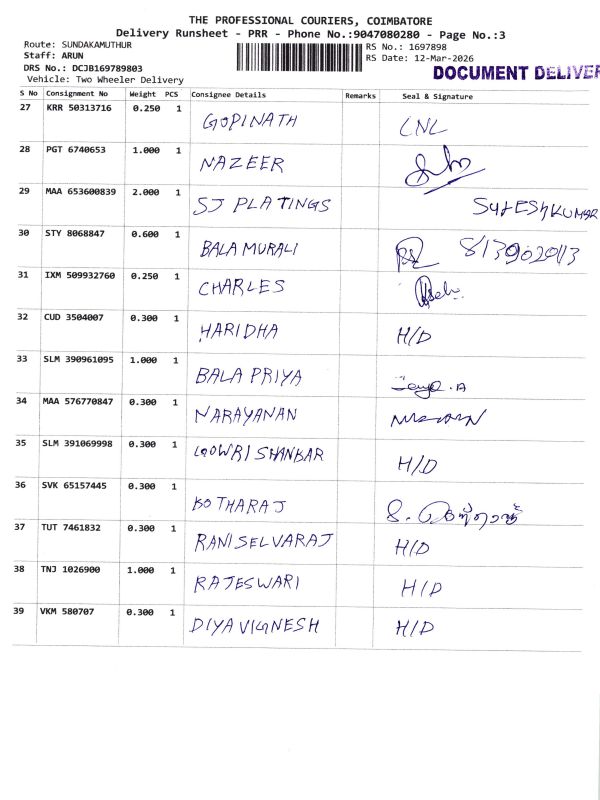 THE PROFESSIONAL COURIERS, COIMBATORE
Delivery Runsheet - PRR - Phone No.:9047080280 - Page No.:3
Route: SUNDAKAMUTHUR
RS No.: 1697898
Staff: ARUN
RS Date: 12-Mar-2026
DRS No.: DCJB169789803
DOCUMENT DELIVER
Vehicle: Two Wheeler Delivery
S No Consignment No Weight PCS Consignee Details Remarks Seal & Signature
27 KRR 50313716 0.250 1 GOPINATH LNL
28 PGT 6740653 1.000 1 NAZEER
29 MAA 653600839 2.000 1 SJ PLATINGS
30 STY 8068847 0.600 1 BALA MURALI
31 IXM 509932760 0.250 1 CHARLES
32 CUD 3504007 0.300 1 HARIDHA H/D
33 SLM 390961095 1.000 1 BALA PRIYA
34 MAA 576770847 0.300 1 NARAYANAN
35 SLM 391069998 0.300 1 GOWRI SHANKAR H/D
36 SVK 65157445 0.300 1 KOTHARAJ
37 TUT 7461832 0.300 1 RANI SELVARAJ H/D
38 TNJ 1026900 1.000 1 RAJESWARI H/D
39 VKM 580707 0.300 1 DIYA VIGNESH H/D